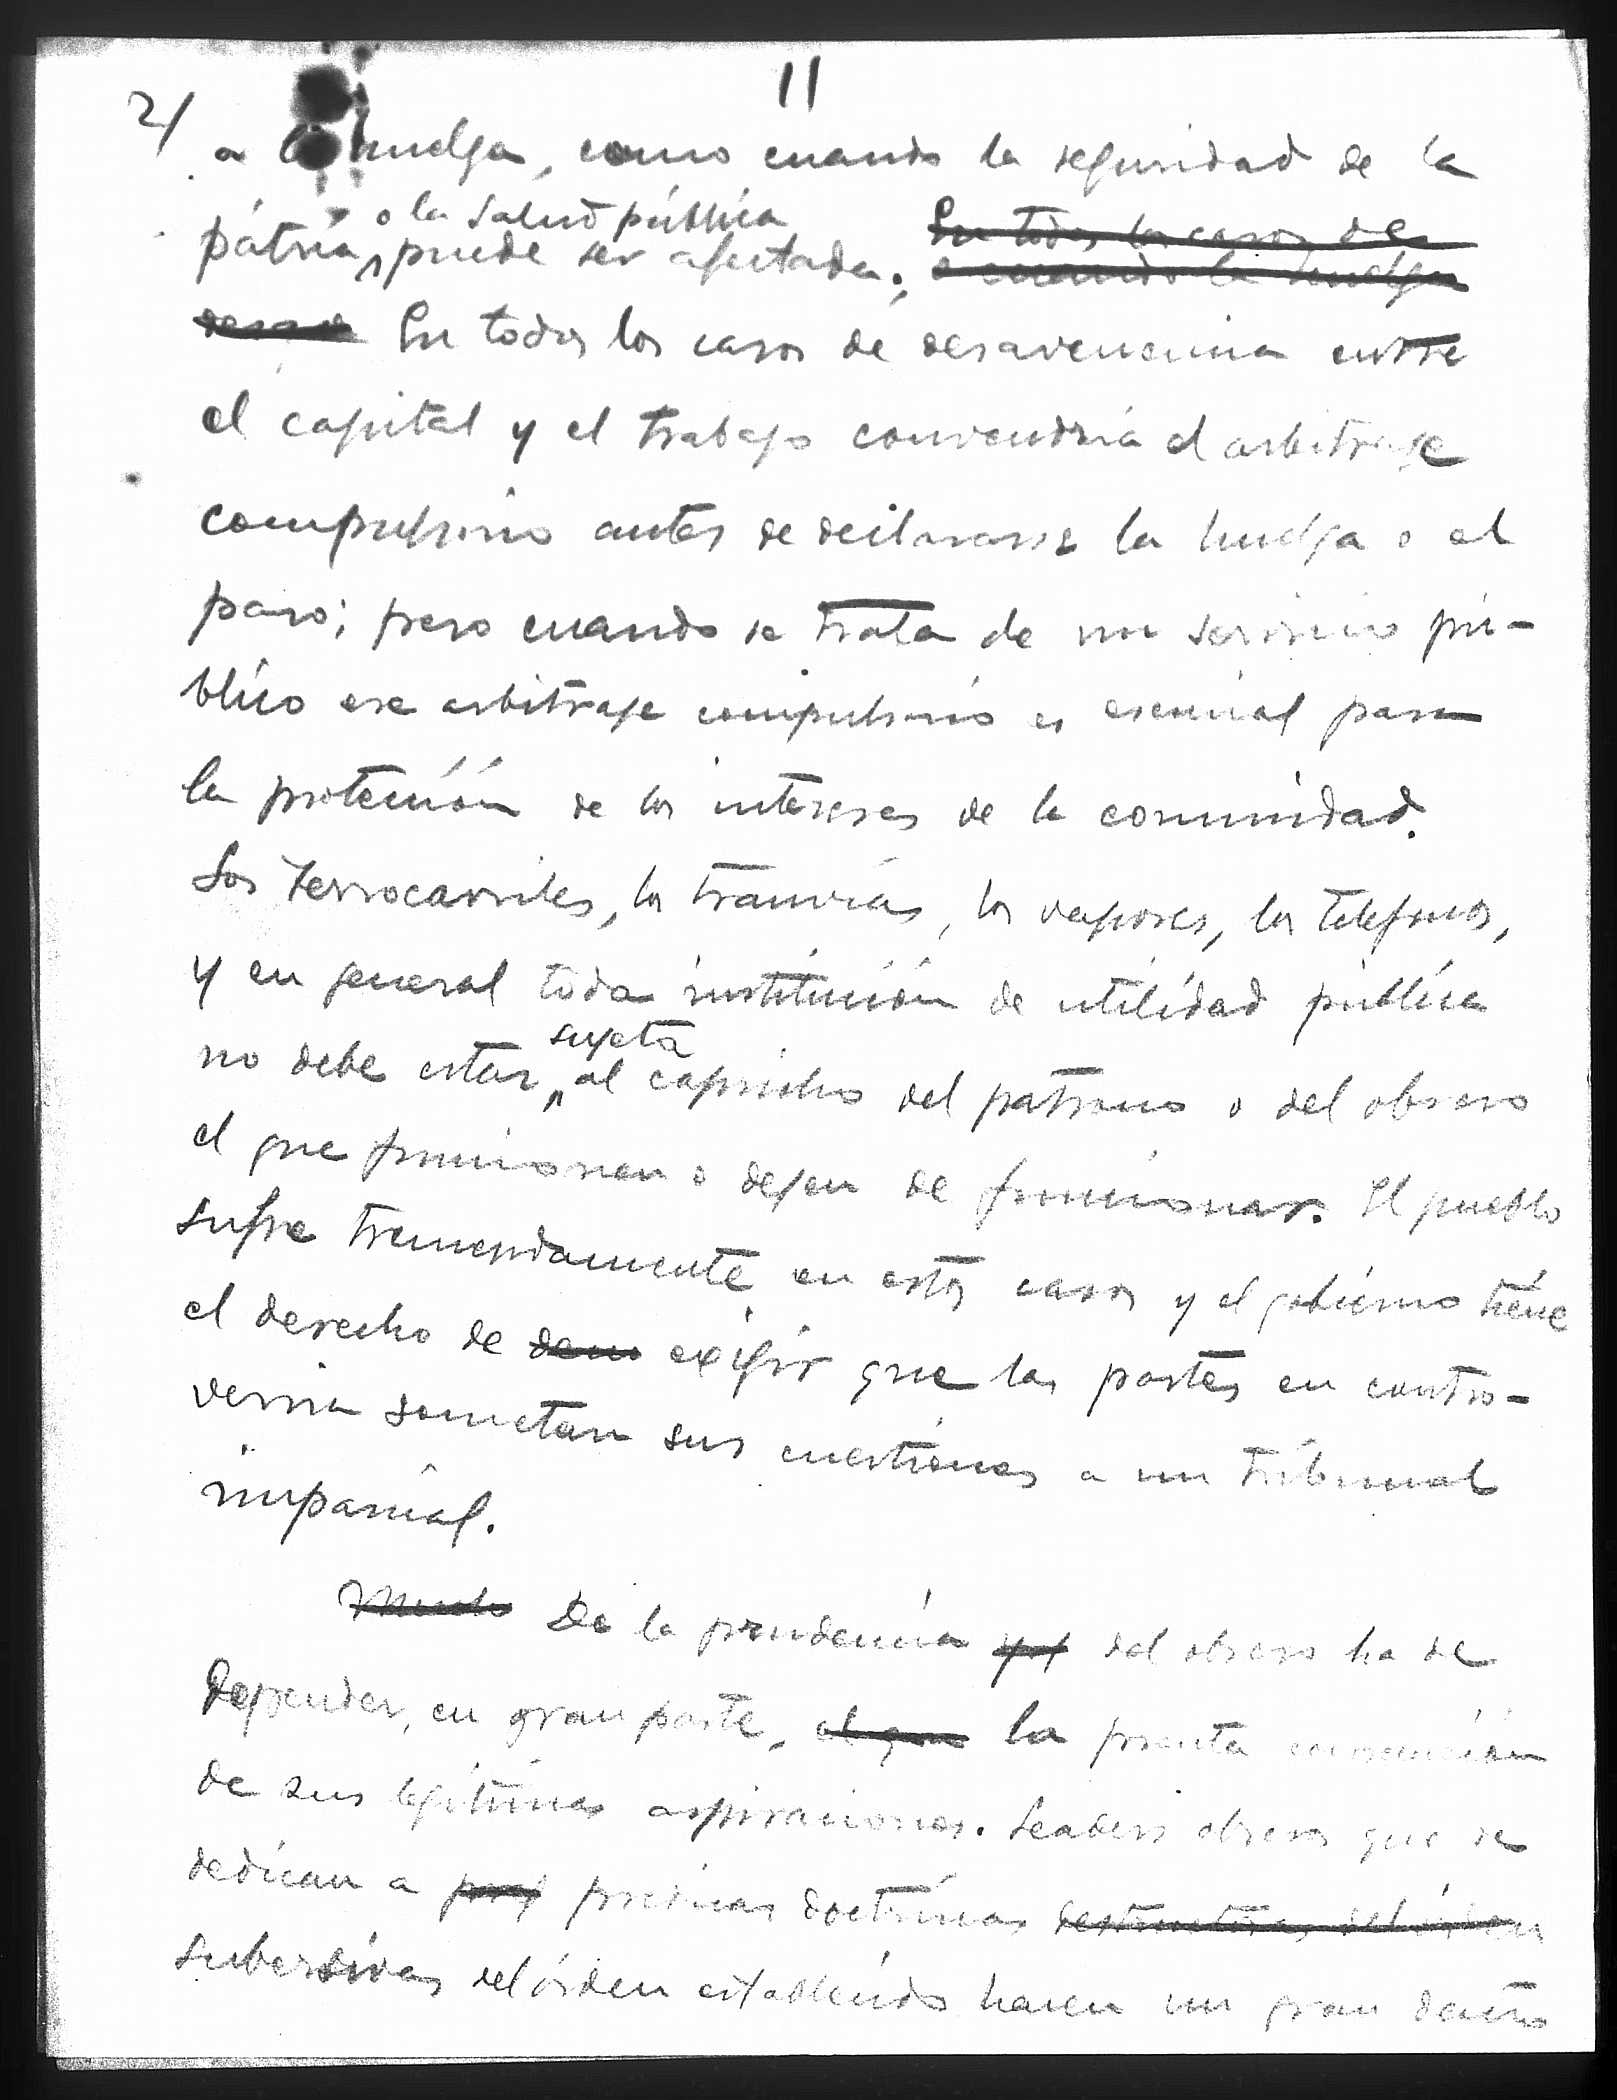 11
2/
a la huelga, como cuando la seguridad de la
o la salud pública En todos los casos de
pátria, puede ser afectada; o cuando la huelga
En todos los casos de desavenencia entre
el capital y el trabajo convendría el arbitraje
compulsorio antes de declararse la huelga o el
paro; pero cuando se trata de un servicio pú-
blico ese arbitraje compulsorio es esencial para
la protección de los intereses de la comunidad.
Los ferrocarriles, los tranvías, los vapores, los teléfonos,
y en general toda institución de utilidad pública
sujeta
no debe estar al capricho del patrono o del obrero
el que funcionen o dejen de funcionar. El pueblo
sufre tremendamente en estos casos y el gobierno tiene
el derecho de exigir que las partes en contro-
versia sometan sus cuestiones a un tribunal
imparcial.
Mucho De la prudencia del obrero ha de
depender, en gran parte, el que la pronta consecución
de sus legítimas aspiraciones. obreros que se
dedican a predicar doctrinas destructoras del orden
subersivas del órden establecido hacen un gran